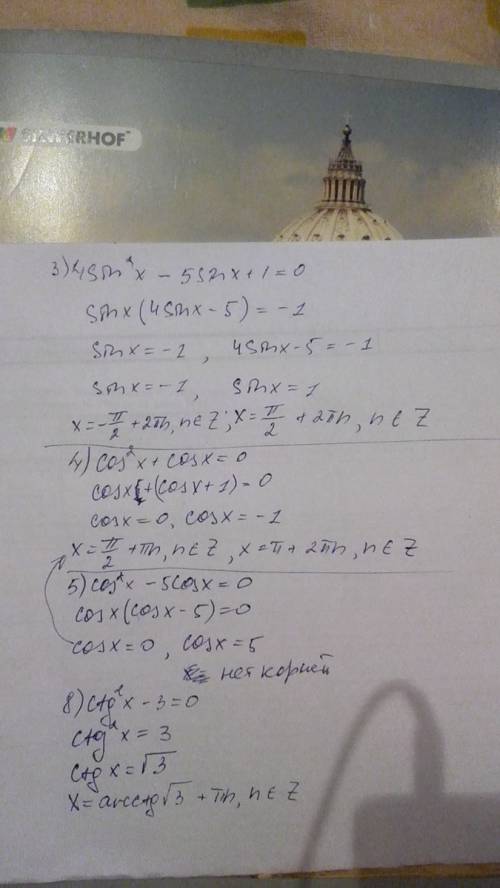 SILVERHOF
3) 4sin²x - 5sinx + 1 = 0
sinx(4sinx - 5) = -1
sinx = -1, 4sinx - 5 = -1
sinx = -1, sinx = 1
x = -π/2 + 2πn, n∈Z; x = π/2 + 2πn, n∈Z
4) cos²x + cosx = 0
cosx+(cosx+1) = 0
cosx = 0, cosx = -1
x = π/2 + πn, n∈Z, x = π + 2πn, n∈Z
5) cos²x - 5cosx = 0
cosx(cosx - 5) = 0
cosx = 0, cosx = 5
нет корней
8) ctg²x - 3 = 0
ctg²x = 3
ctgx = √3
x = arcctg√3 + πn, n∈Z